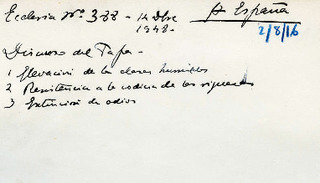 Ecclesia Nº 388 - 14 Dbre
1948.-
H España
2/8/16
Discurso del Papa-
1 Elevación de las clases humildes
2 Resistencia a la codicia de los
3 Extinción de odios